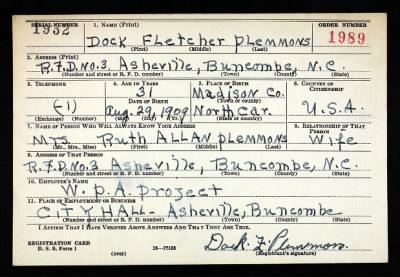 SERIAL NUMBER 1. NAME (Print) ORDER NUMBER
1932 Dock Fletcher Plemmons 1989
(First) (Middle) (Last)
2. ADDRESS (Print)
R.F.D. No. 3. Asheville, Buncombe, N.C.
(Number and street or R. F. D. number) (Town) (County) (State)
3. TELEPHONE 4. AGE IN YEARS 5. PLACE OF BIRTH 6. COUNTRY OF CITIZENSHIP
31 Madison Co.
DATE OF BIRTH (Town or county)
Aug. 29, 1909 North Car. U.S.A.
(Exchange) (Number) (Mo.) (Day) (Yr.) (State or country)
7. NAME OF PERSON WHO WILL ALWAYS KNOW YOUR ADDRESS 8. RELATIONSHIP OF THAT PERSON
Mrs Ruth Allan Plemmons Wife
(Mr., Mrs., Miss) (First) (Middle) (Last)
9. ADDRESS OF THAT PERSON
R.F.D. No 3 Asheville, Buncombe, N.C.
(Number and street or R. F. D. number) (Town) (County) (State)
10. EMPLOYER'S NAME
W. P. A. Project
11. PLACE OF EMPLOYMENT OR BUSINESS
CITY HALL - Asheville, Buncombe
(Number and street or R. F. D. number) (Town) (County) (State)
I AFFIRM THAT I HAVE VERIFIED ABOVE ANSWERS AND THAT THEY ARE TRUE.
REGISTRATION CARD Dock F. Plemmons.
D. S. S. Form 1 (over) 16-17105 (Registrant's signature)